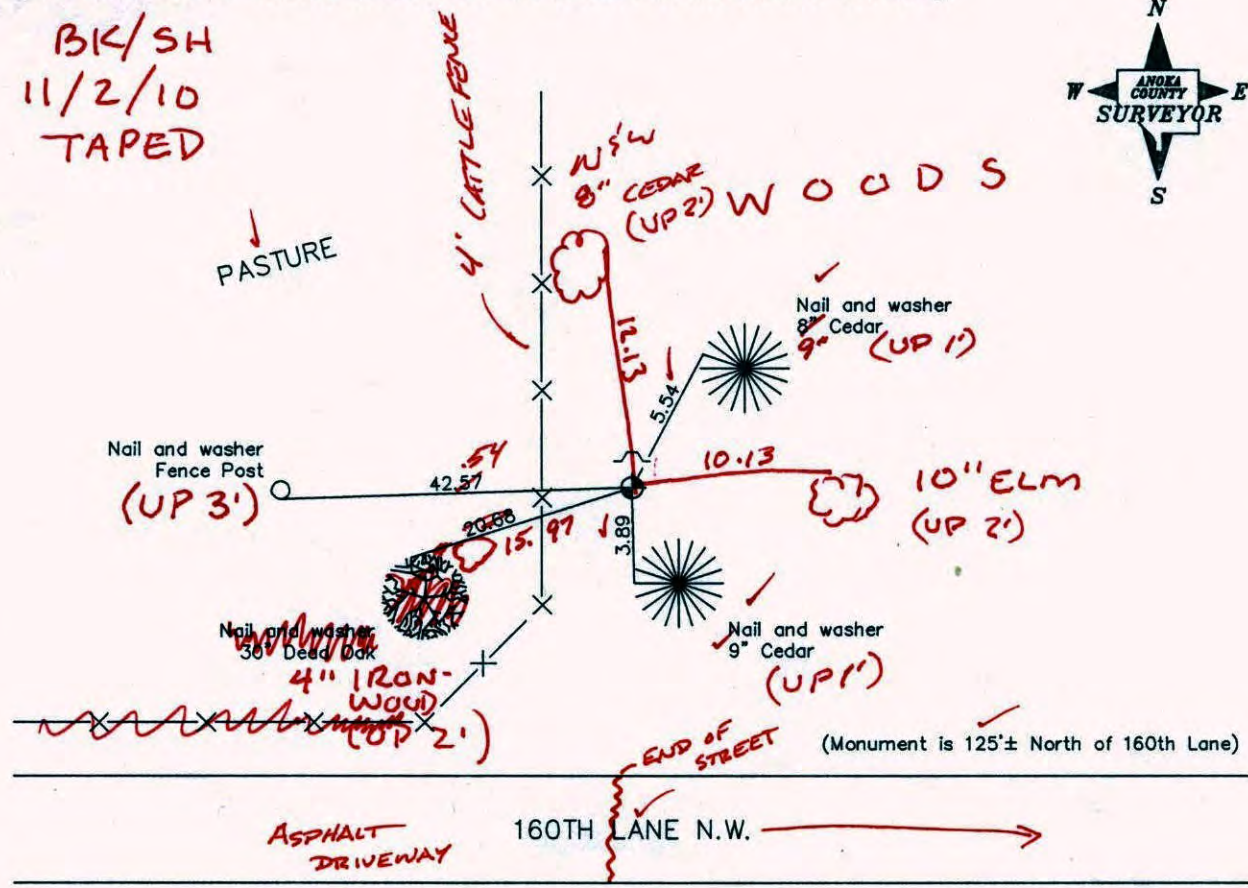 BK/SH
11/2/10
TAPED
N
W
ANOKA
COUNTY
E
SURVEYOR
S
4' CATTLE FENCE
N & W
8" CEDAR
(UP 2')
WOODS
PASTURE
Nail and washer
8" Cedar
9"
(UP 1')
12.13
5.54
Nail and washer
Fence Post
(UP 3')
.54
42.57
10.13
10" ELM
(UP 2')
20.68
15.97
3.89
Nail and washer
30" Dead Oak
4" IRON-
WOOD
(UP 2')
Nail and washer
9" Cedar
(UP 1')
END OF
STREET
(Monument is 125'± North of 160th Lane)
ASPHALT
DRIVEWAY
160TH LANE N.W.